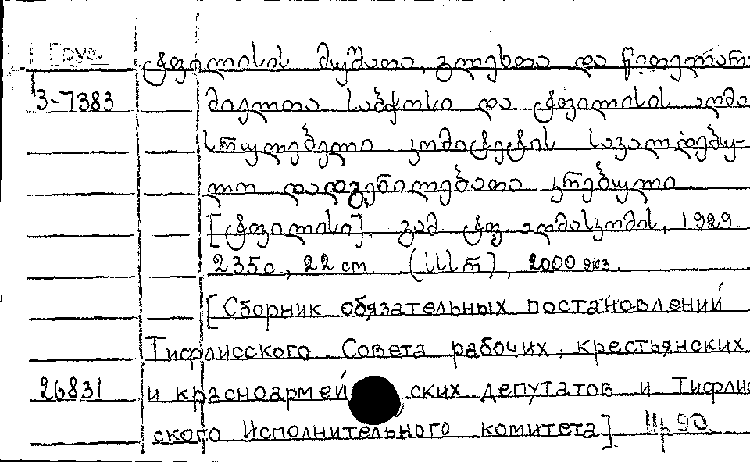 Груз.
ტფილისის მუშათა, გლეხთა და წითელარ-
3-7383 მიელთა საბჭოსი და ტფილისის აღმა
სრულებელი კომიტეტის სავალდებუ-
ლო დადგენილებათა კრებული
[ტფილისი]. გამ. ტფ. აღმასკომის, 1929
235с, 22 cm (ს.ს.ს.რ), 2000 экз.
[Сборник обязательных постановлений
Тифлисского Совета рабочих, крестьянских
26831 и красноармейских депутатов и Тифлис
ского Исполнительного комитета]